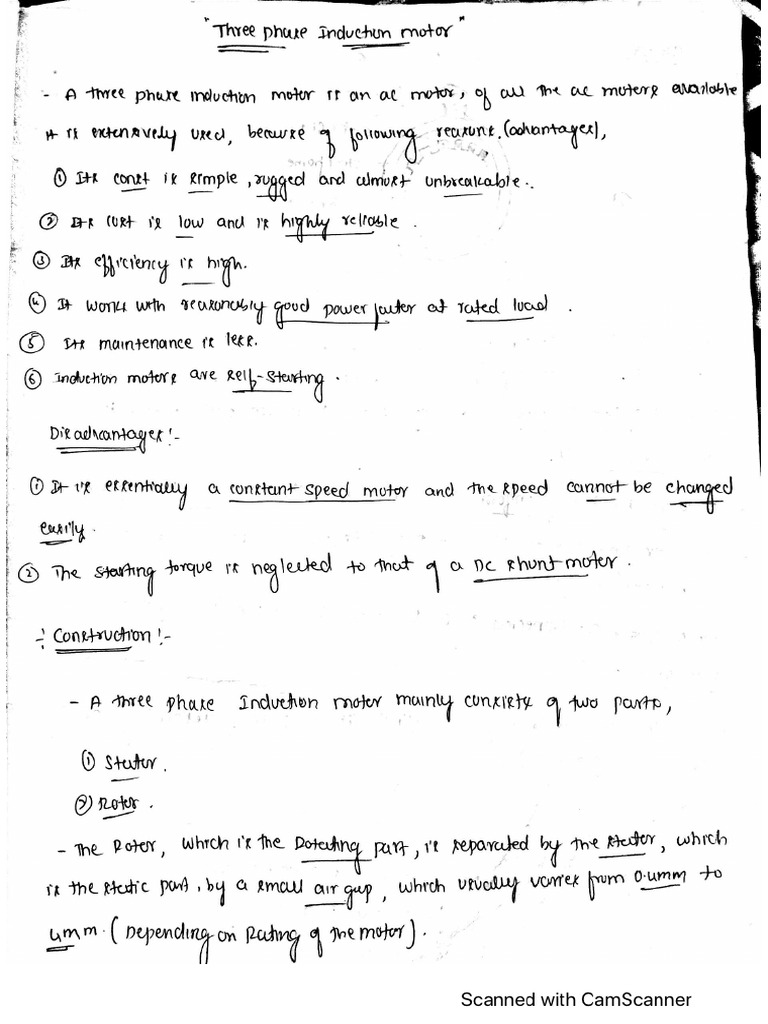 "Three phase Induction motor"
- A three phase induction motor is an ac motor, of all the ac motors available
it is extensively used, because of following reasons.(advantages),
① Its const is simple, rugged and almost unbreakable..
② Its cost is low and is highly reliable.
③ Its efficiency is high.
④ It works with reasonably good power factor at rated load.
⑤ Its maintenance is less.
⑥ induction motors are self-starting.
Disadvantages:-
① It is essentially a constant speed motor and the speed cannot be changed
easily.
② The starting torque is neglected to that of a DC shunt motor.
-: Construction:-
- A three phase Induction motor mainly consists of two parts,
① Stator.
② Rotor.
- The Rotor, which is the Rotating part, is separated by the stator, which
is the static part, by a small air gap, which usually varies from 0.4mm to
4mm. (Depending on Rating of the motor).
Scanned with CamScanner